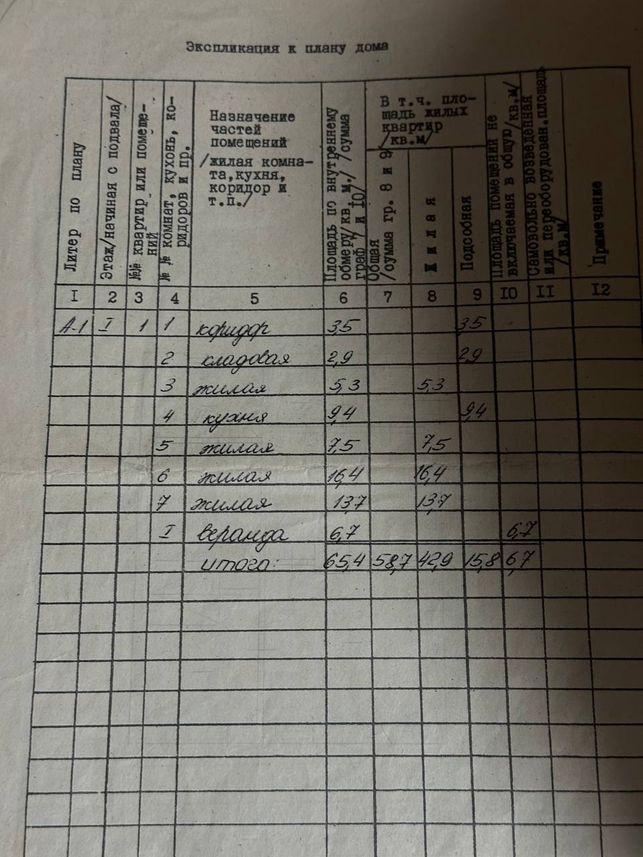 Экспликация к плану дома
Литер по плану
Этаж/начиная с подвала/
№№ квартир или помещений
№№ комнат, кухонь, коридоров и пр.
Назначение
частей
помещений
/жилая комна-
та,кухня,
коридор и
т.п./
Площадь по внутреннему
обмеру/кв м./ /сумма
граф 7 и 10/
В т.ч. пло-
щадь жилых
квартир
/кв.м/
Общая
/сумма гр. 8 и 9/
Жилая
Подсобная
Площадь помещений не
включаемая в общую/кв.м/
Самовольно возведенная
или переоборудован.площадь
/кв.м/
Примечание
I 2 3 4 5 6 7 8 9 10 11 12
А-1 I 1 1 коридор 3,5 3,5
2 кладовая 2,9 2,9
3 жилая 5,3 5,3
4 кухня 9,4 9,4
5 жилая 7,5 7,5
6 жилая 16,4 16,4
7 жилая 13,7 13,7
I веранда 6,7 6,7
итого: 65,4 58,7 42,9 15,8 6,7